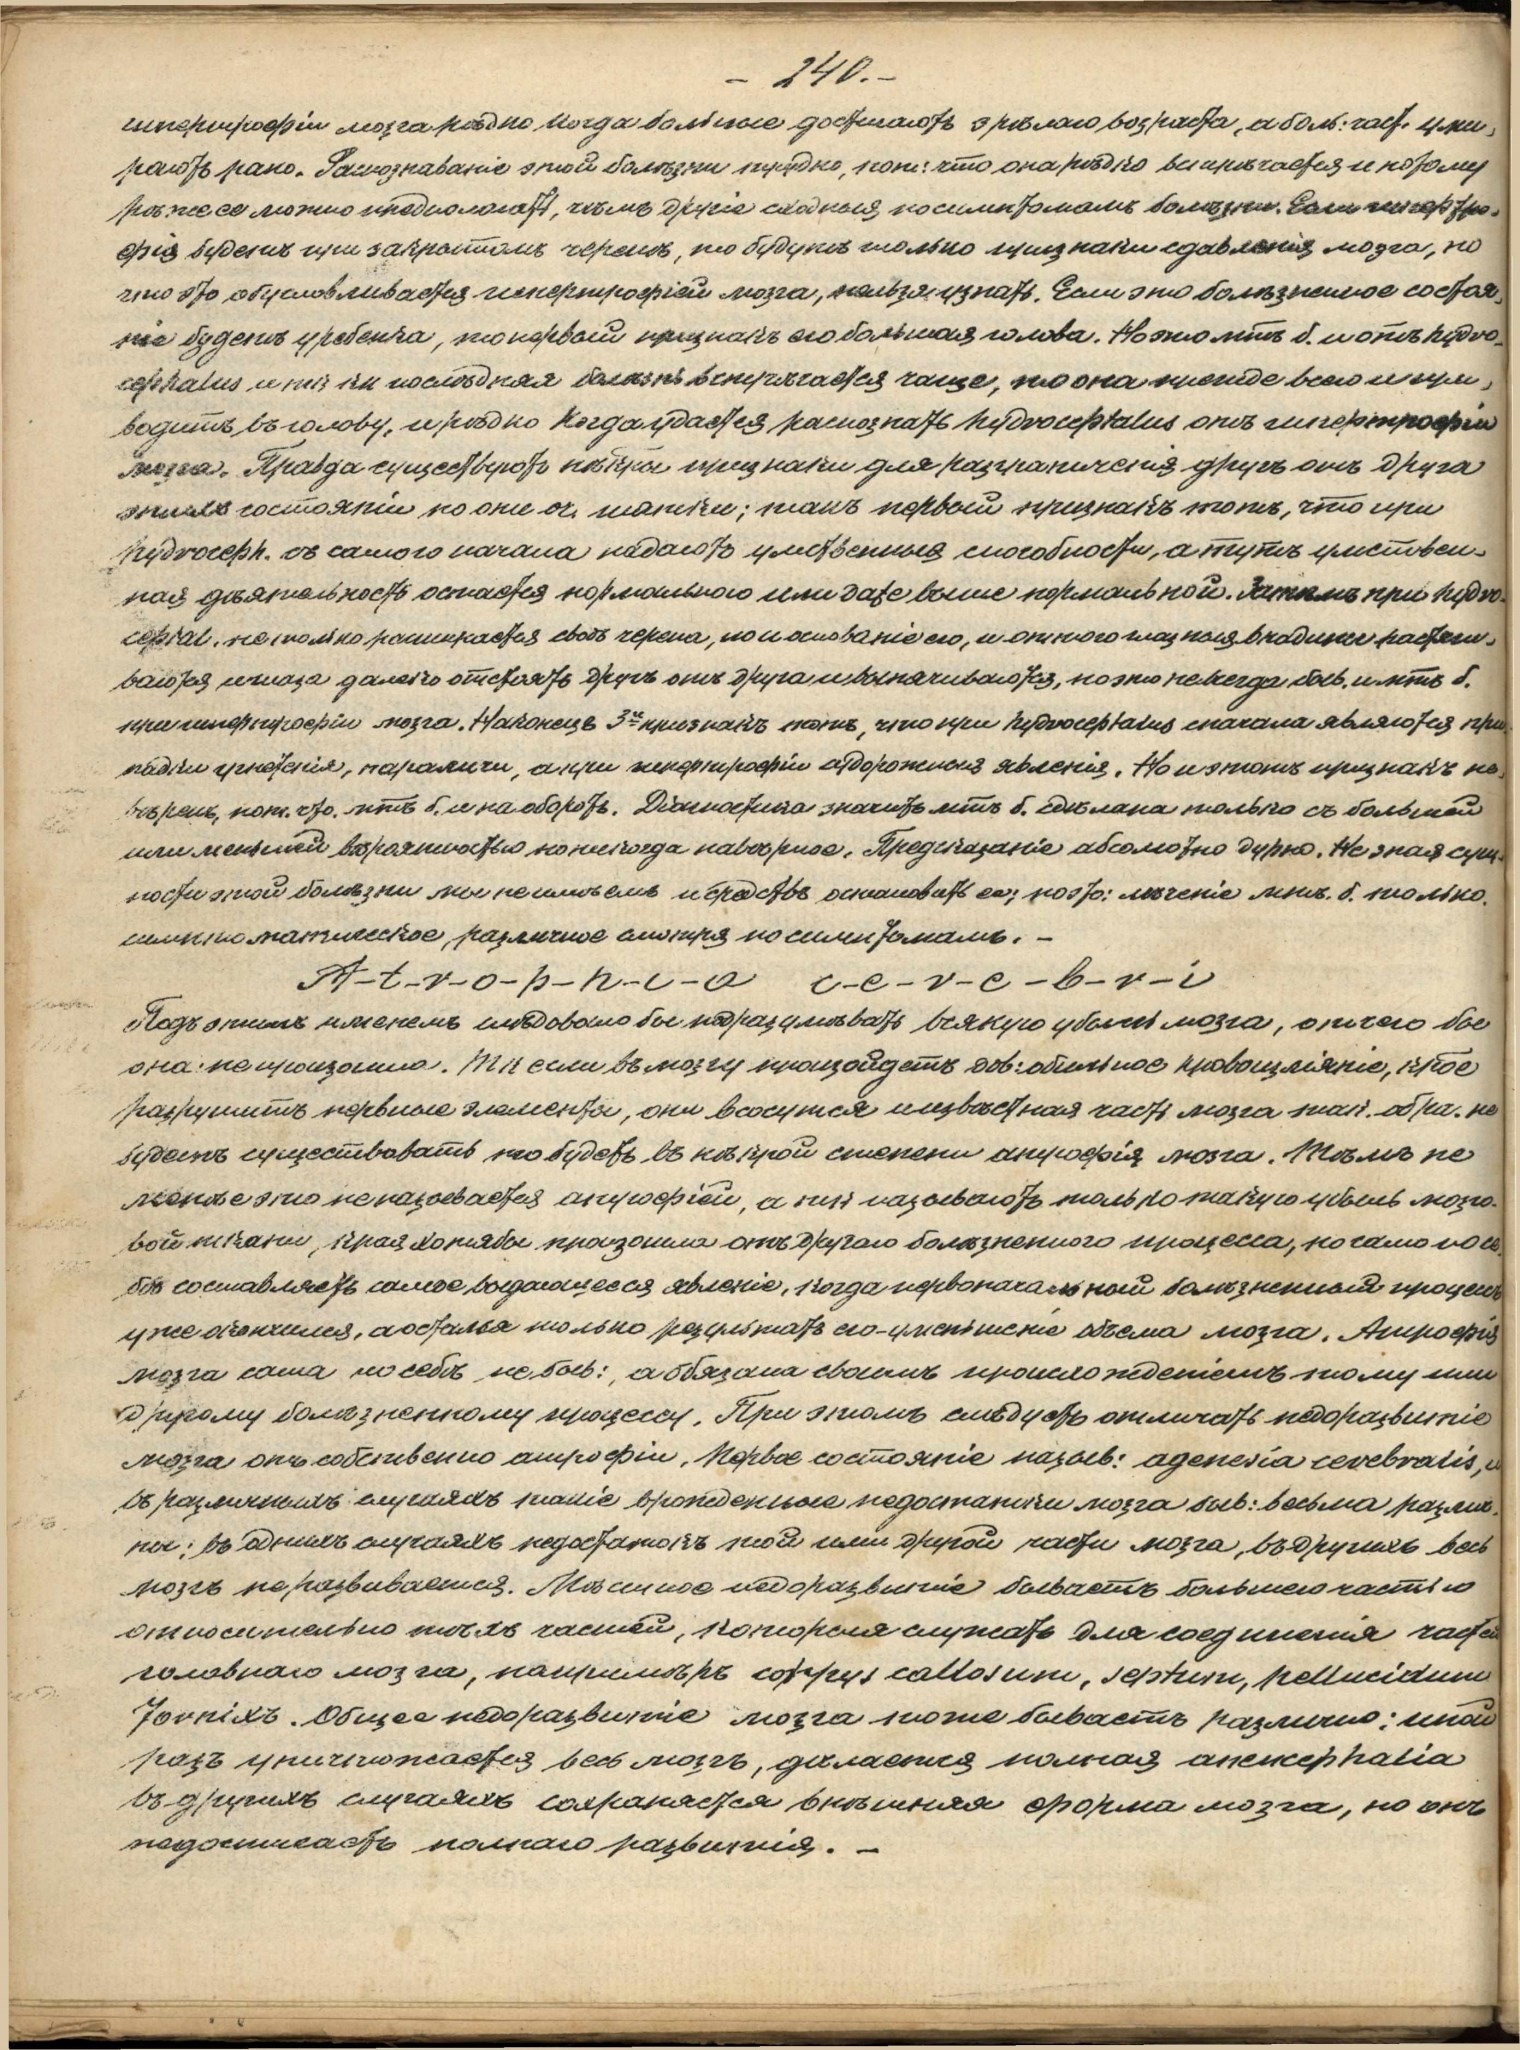 - 240. -
гипертрофіи мозга рѣдко когда больные достигаютъ зрѣлаго возраста, а боль: част. уми-
раютъ рано. Распознаваніе этой болѣзни трудно, пот: что она рѣдко встрѣчается и потому
рѣже ее можно предполагать, чѣмъ другіе сходныя по симптомамъ болѣзни. Если гипертро-
фія будетъ при закрытомъ черепѣ, то будутъ только признаки сдавленія мозга, но
что это обусловливается гипертрофіей мозга, нельзя узнать. Если это болѣзненное состоя-
ніе будетъ у ребенка, то первый признакъ его большая голова. Но это мтъ б. и отъ hydro-
cephalus и тк кк послѣдняя болѣзнь встрѣчается чаще, то она прежде всего и при-
водитъ въ голову, и рѣдко когда удается распознать hydrocephalus отъ гипертрофіи
мозга. Правда существуютъ нѣкрые признаки для разграниченія другъ отъ друга
этихъ состояній но они оч. шатки; такъ первый признакъ тотъ, что при
hydroceph. съ самого начала падаютъ умственныя способности, а тутъ умствен-
ная дѣятельность остается нормальною или даже выше нормальной. Затѣмъ при hydro-
cephal. не только расширяется сводъ черепа, но и основаніе его, и от того глазныя впадины растяги-
ваются и глаза далеко отстоятъ другъ отъ друга и выпячиваются, но это не всегда быв. и мтъ б.
при гипертрофіи мозга. Наконецъ 3й признакъ тотъ, что при hydrocephalus сначала являются при-
падки угнетенія, параличи, а при гипертрофіи судорожныя явленія. Но и этотъ признакъ не-
вѣренъ, пот. что. мтъ б. и на оборотъ. Діагностика значитъ мтъ б. сдѣлана только съ большей
или меньшей вѣроятностью но никогда навѣрное. Предсказаніе абсолютно дурно. Не зная сущ-
ности этой болѣзни мы не имѣемъ и средствъ остановить ее; поэто: лѣченіе мтъ. б. только
симптоматическое, различное смотря по симптомамъ. -
A-t-r-o-p-h-i-a c-e-r-e-b-r-i
Подъ этимъ именемъ слѣдовало бы подразумѣвать всякую убыль мозга, отъ чего бы
она не произошла. Тк если въ мозгу произойдетъ дов: обильное кровоизліяніе, кроe
разрушитъ нервные элементы, они всосутся и извѣстная часть мозга так. обра. не
будетъ существовать то будетъ въ нѣкрой степени атрофія мозга. Тѣмъ не
менѣе это не называется атрофіей, а тк называютъ только такую убыль мозго-
вой ткани, края хотя бы произошла отъ другаго болѣзненнаго процесса, но само по се-
бѣ составляетъ самое выдающееся явленіе, когда первоначальный болѣзненный процессъ
уже окончился, а остался только результатъ его - уменьшеніе объема мозга. Атрофія
мозга сама по себѣ не быв:, а обязана своимъ происхожденіемъ тому или
другому болѣзненному процессу. При этомъ слѣдуетъ отличать недоразвитіе
мозга отъ собственно атрофіи. Первое состояніе назыв: agenesia cerebralis, и
въ различныхъ случаяхъ такіе врожденные недостатки мозга быв: весьма различ-
ны: въ однихъ случаяхъ недостатокъ той или другой части мозга, въ другихъ весь
мозгъ не развивается. Мѣстное недоразвитіе бываетъ большею частью
относительно тѣхъ частей, которыя служатъ для соединенія частей
головнаго мозга, напримѣръ corpus callosum, septum, pellucidum
Fornixъ. Общее недоразвитіе мозга тоже бываетъ различно: иной
разъ уничтожается весь мозгъ, дѣлается полная anencephalia
въ другихъ случаяхъ сохраняется внѣшняя форма мозга, но онъ
недостигаетъ полнаго развитія. -